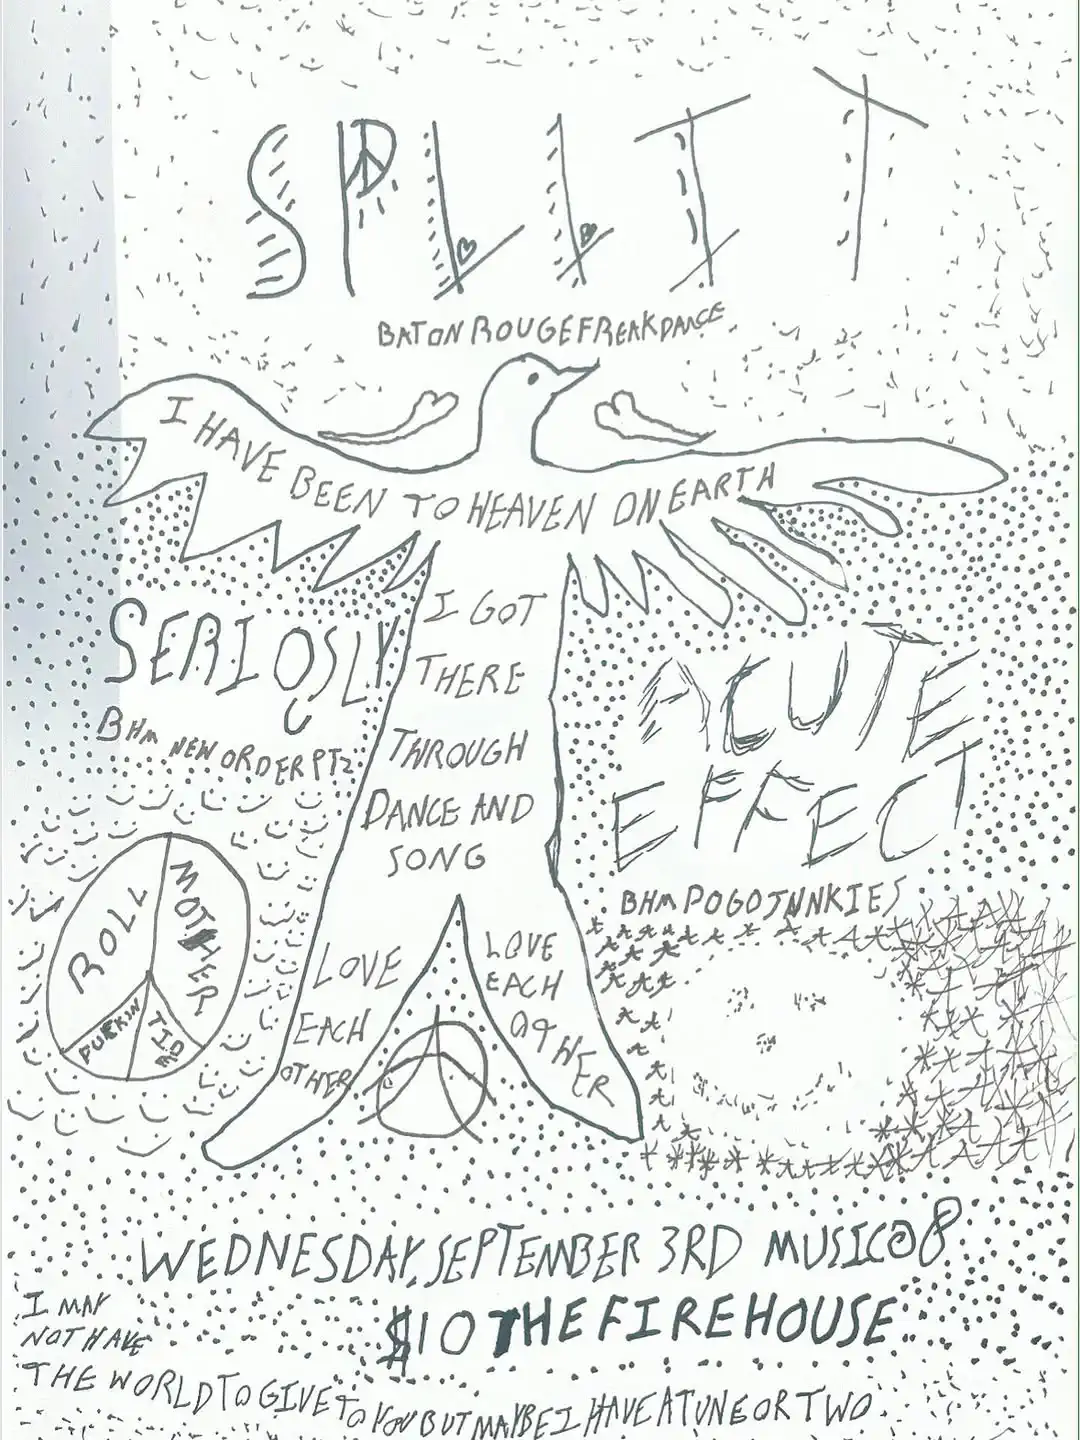 SPLLIT
BATON ROUGE FREAK DANCE
I HAVE BEEN TO HEAVEN ON EARTH
I GOT
THERE
THROUGH
DANCE AND
SONG
LOVE
EACH
OTHER
LOVE
EACH
OTHER
SERIOSLY
BHM NEW ORDER PT2
ACUTE
EFFECT
BHM POGO JUNKIES
ROLL
MOTHER
TIMD
WEDNESDAY, SEPTEMBER 3RD MUSIC @ 8
$10 THE FIREHOUSE
I MAY
NOT HAVE
THE WORLD TO GIVE TO YOU BUT MAYBE I HAVE A TUNE OR TWO